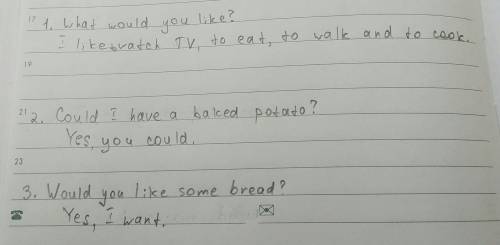 17 1. What would you like?
I like watch TV, to eat, to walk and to cook.
19
21 2. Could I have a baked potato?
Yes, you could.
23
3. Would you like some bread?
Yes, I want.